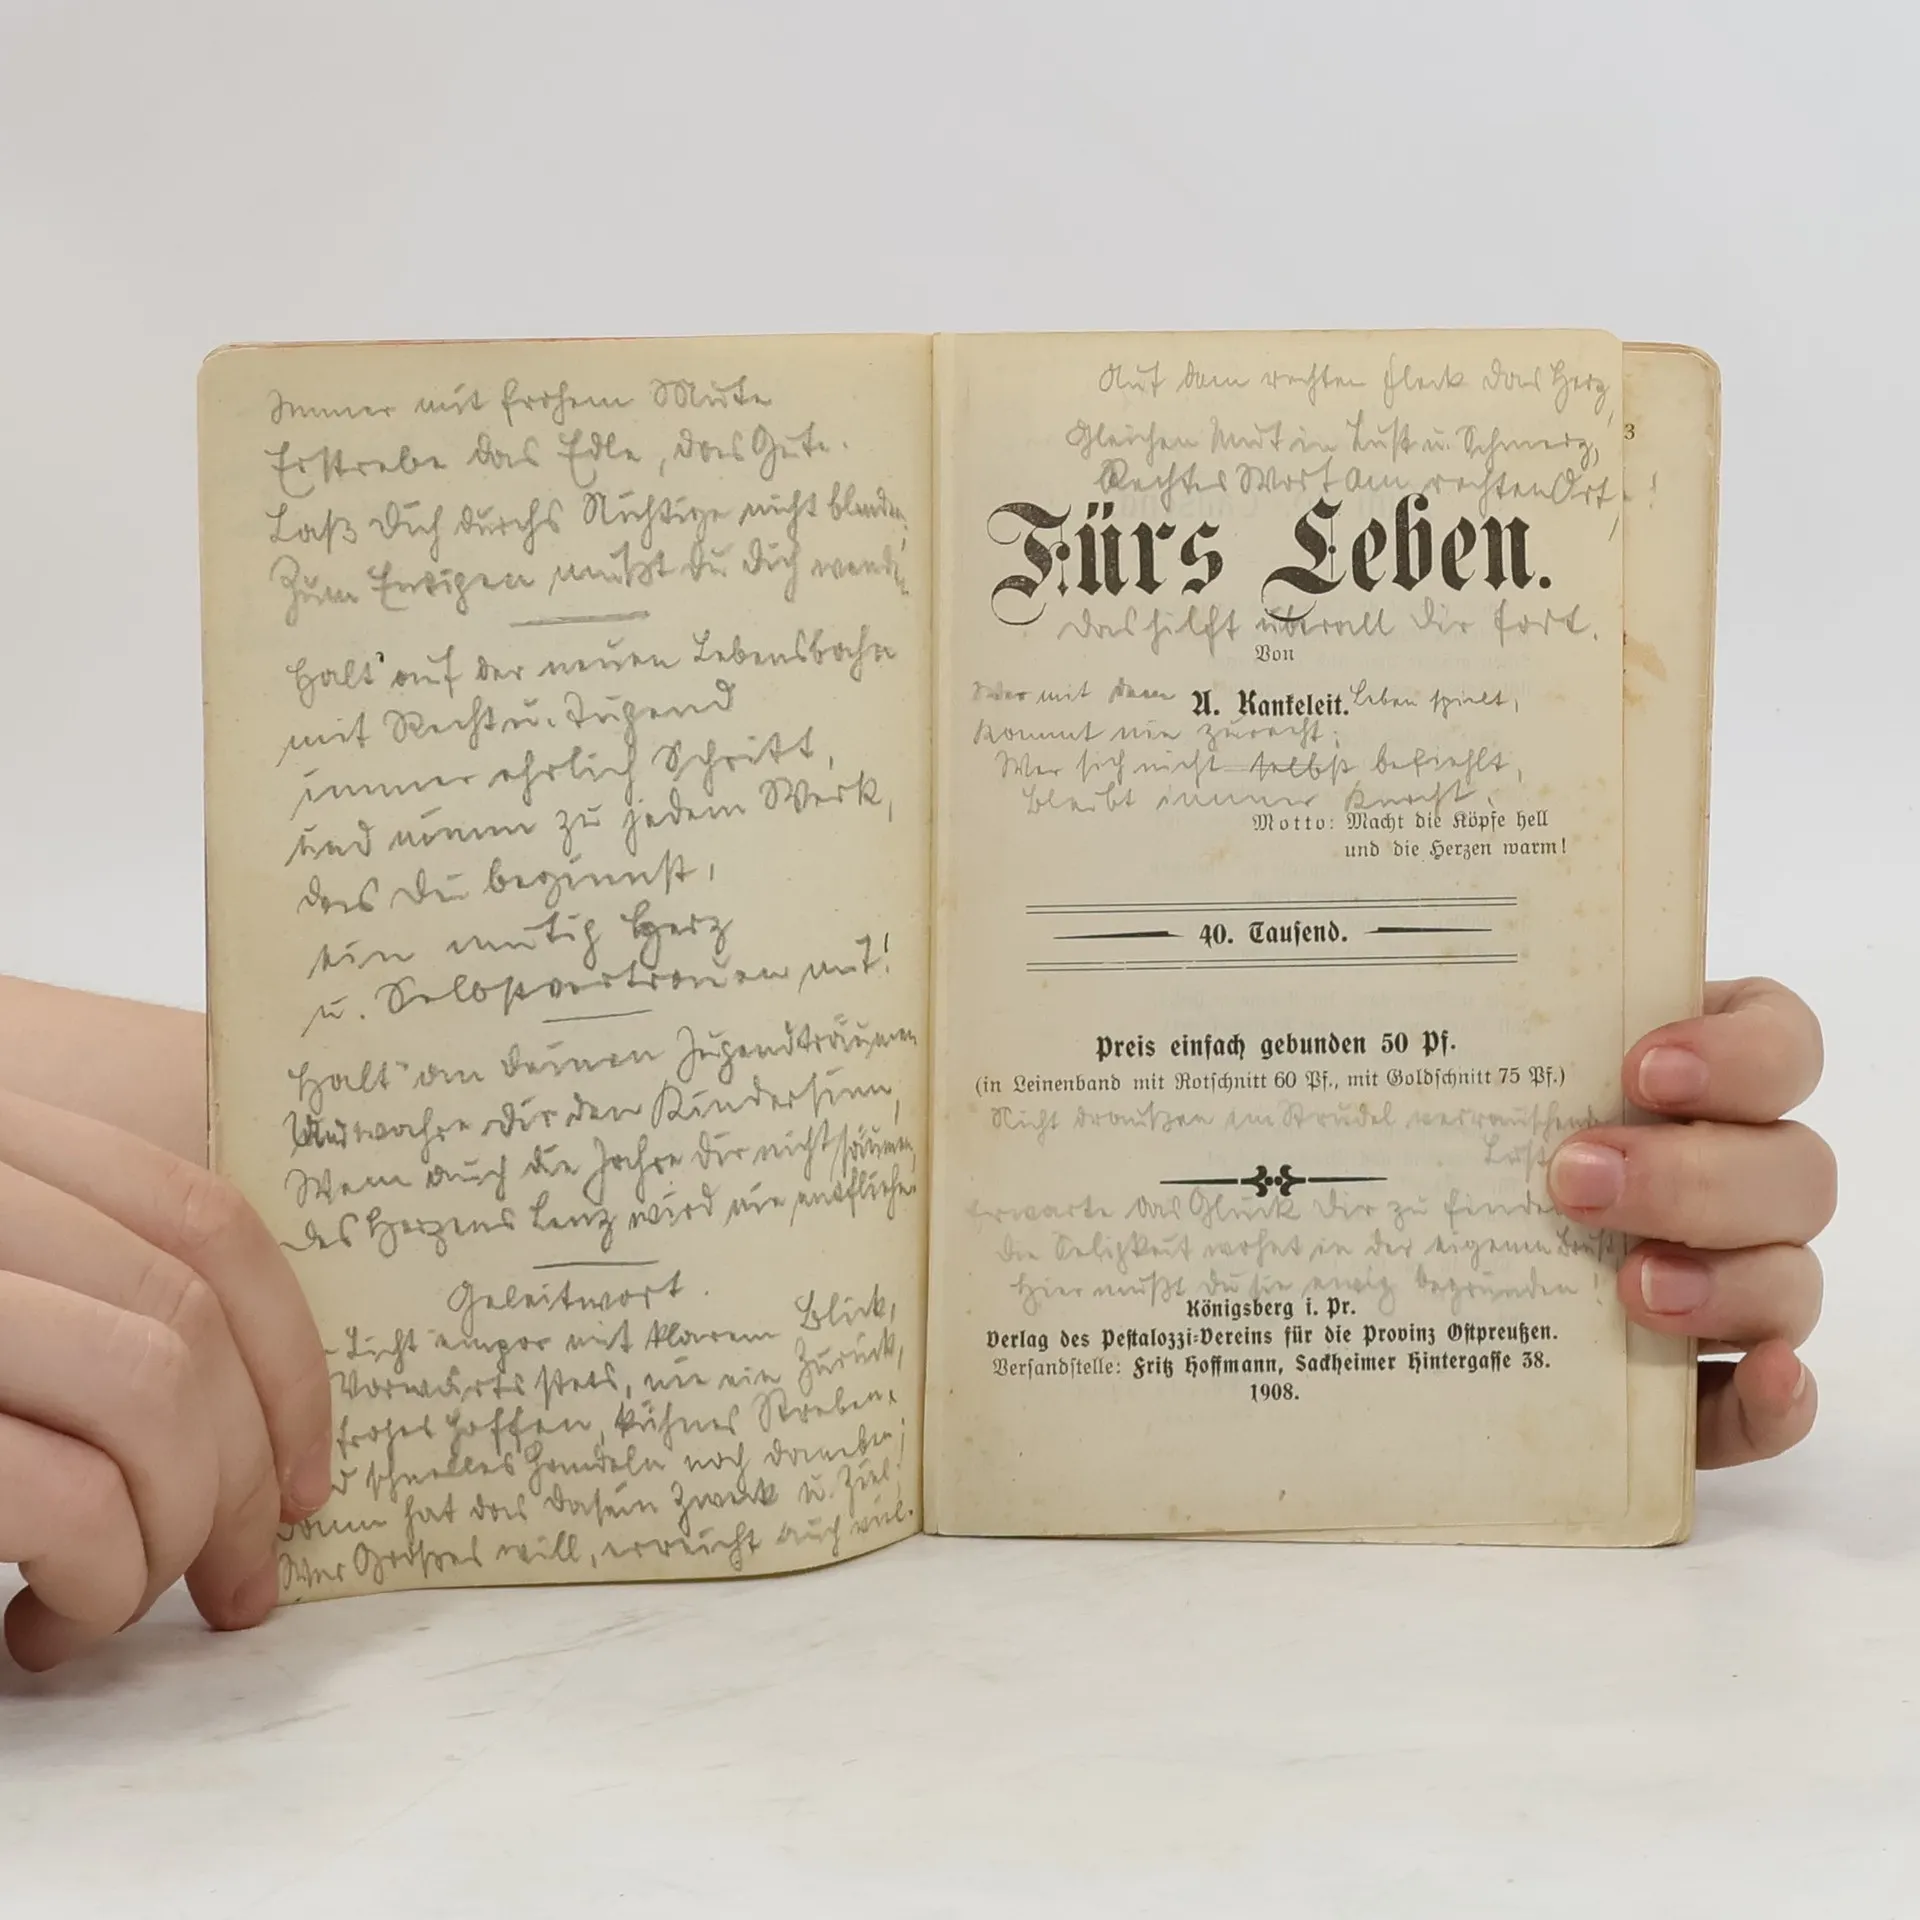 Immer mit frohem Mute
Erstrebe das Edle, das Gute.
Laß Dich durchs Nichtige nicht blenden,
Zum Ewigen mußt Du Dich wenden
Halt' auf der neuen Lebensbahn
mit Recht u. Tugend
immer ehrlich Schritt,
und nimm zu jedem Werk,
das Du beginnst,
ein mutig Herz
u. Selbstvertrauen mit!
Halt' an deinen Jugendträumen
Und wahre Dir den Kindersinn,
Wenn auch die Jahre Dir nicht säumen,
Des Herzens Lenz wird nie entfliehen
Geleitwort.
Licht empor mit klarem Blick,
Vorwärts stets, nie ein Zurück,
frohes Hoffen, kühnes Streben,
schnelles Handeln noch daneben;
Dann hat das Dasein Zweck u. Ziel,
Wer Großes will, erreicht auch viel.
Auf dem rechten Fleck das Herz,
Gleichen Mut in Lust u. Schmerz,
Rechtes Wort am rechten Ort,!
3
Fürs Leben.
Das hilft überall Dir fort.
Von
Wer mit dem A. Kankeleit. Leben spielt,
Kommt nie zurecht;
Wer sich nicht selbst befiehlt,
Bleibt immer Knecht.
Motto: Macht die Köpfe hell
und die Herzen warm!
40. Tausend.
Preis einfach gebunden 50 Pf.
(in Leinenband mit Rotschnitt 60 Pf., mit Goldschnitt 75 Pf.)
Nicht draußen im Strudel verrauschender
Lust
Erwarte das Glück Dir zu finden
Die Seligkeit wohnt in der eigenen Brust
Hier mußt Du sie ewig begründen!
Königsberg i. Pr.
Verlag des Pestalozzi-Vereins für die Provinz Ostpreußen.
Versandstelle: Fritz Hoffmann, Sackheimer Hintergasse 38.
1908.